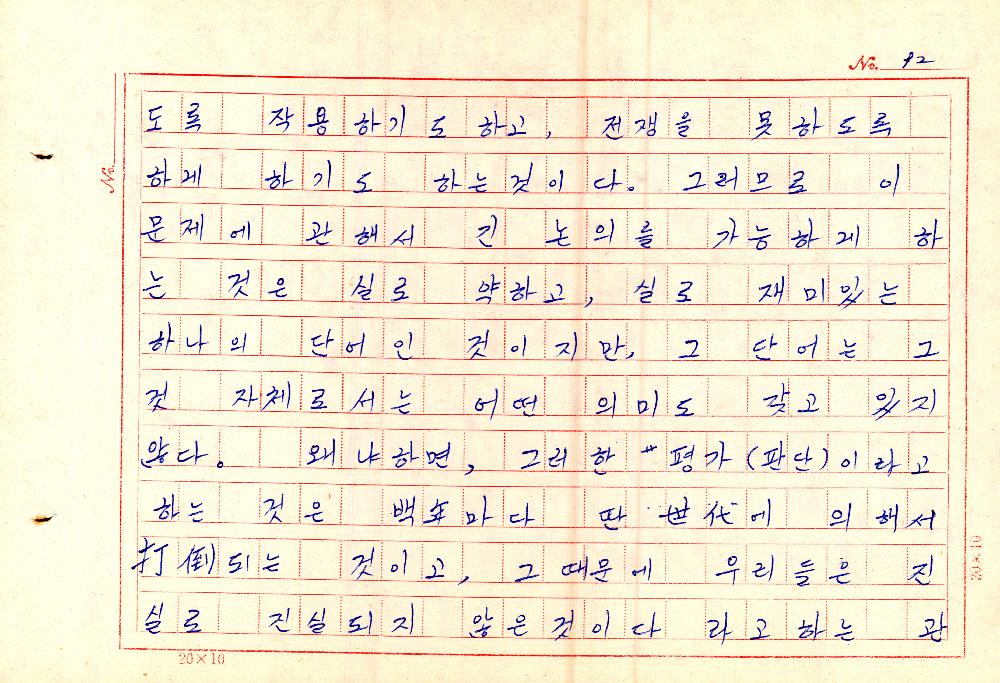 No. 12
도록 작용하기도 하고, 전쟁을 못하도록
하게 하기도 하는것이다. 그러므로 이
문제에 관해서 긴 논의를 가능하게 하
는 것은 실로 약하고, 실로 재미있는
하나의 단어인 것이지만, 그 단어는 그
것 자체로서는 어떤 의미도 갖고 있지
않다. 왜냐하면, 그러한 평가(판단)이라고
하는 것은 백年마다 딴 世代에 의해서
打倒되는 것이고, 그때문에 우리들은 진
실로 진실되지 않은것이다 라고하는 관
20×10
No.
20×10